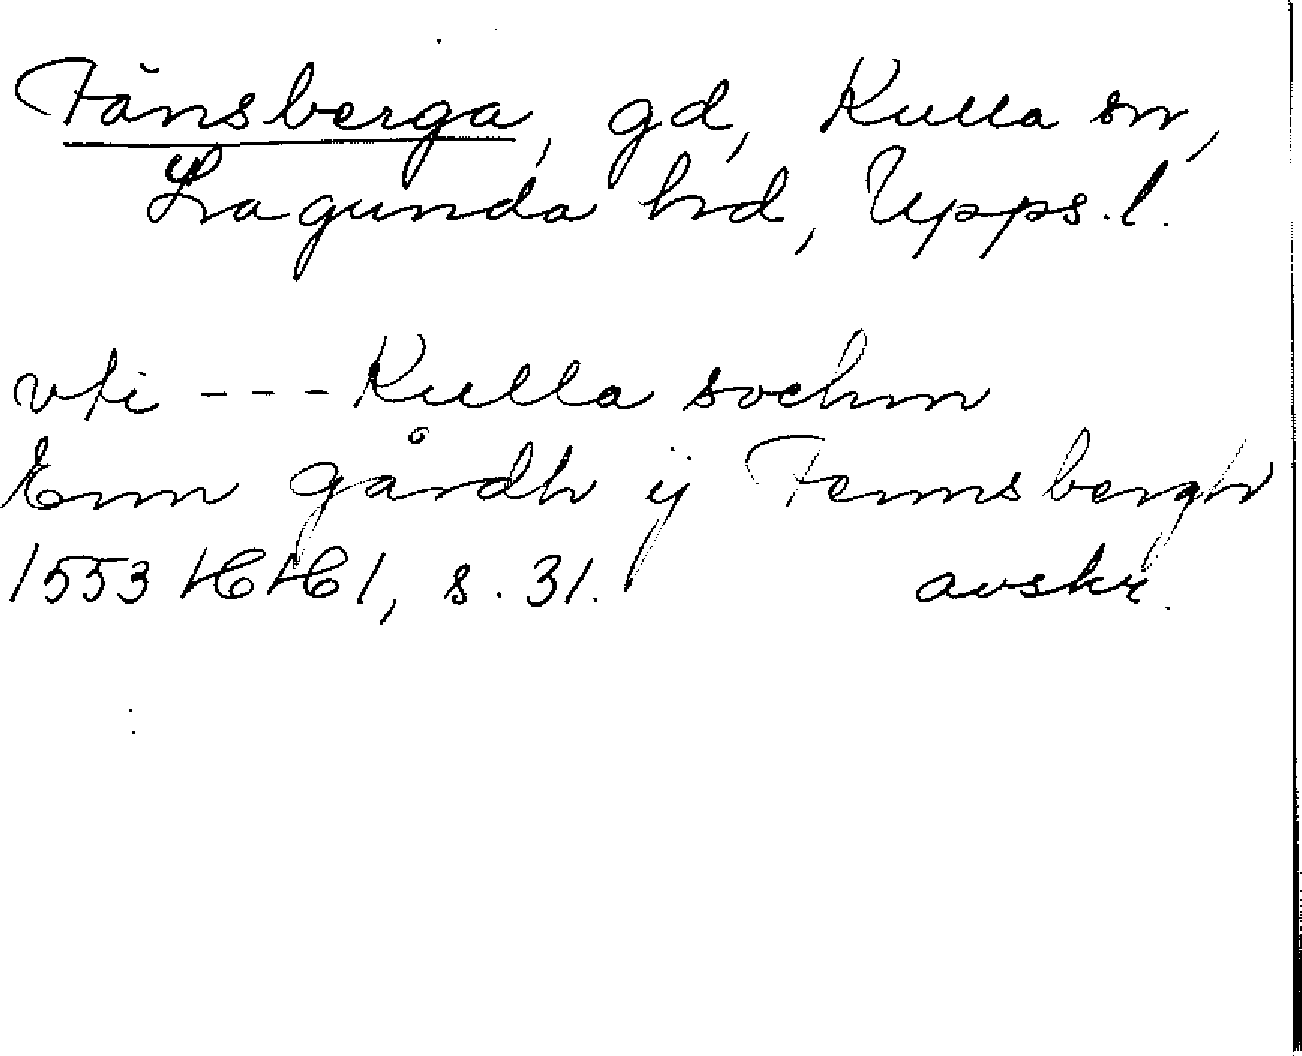 Fånsberga, gd, Kulla sn,
Lagunda hd, Upps.l.
vti --- Kulla sochnn
Enn gårdh ij Fennsbergh
1553 HH 1, s. 31. avskr.